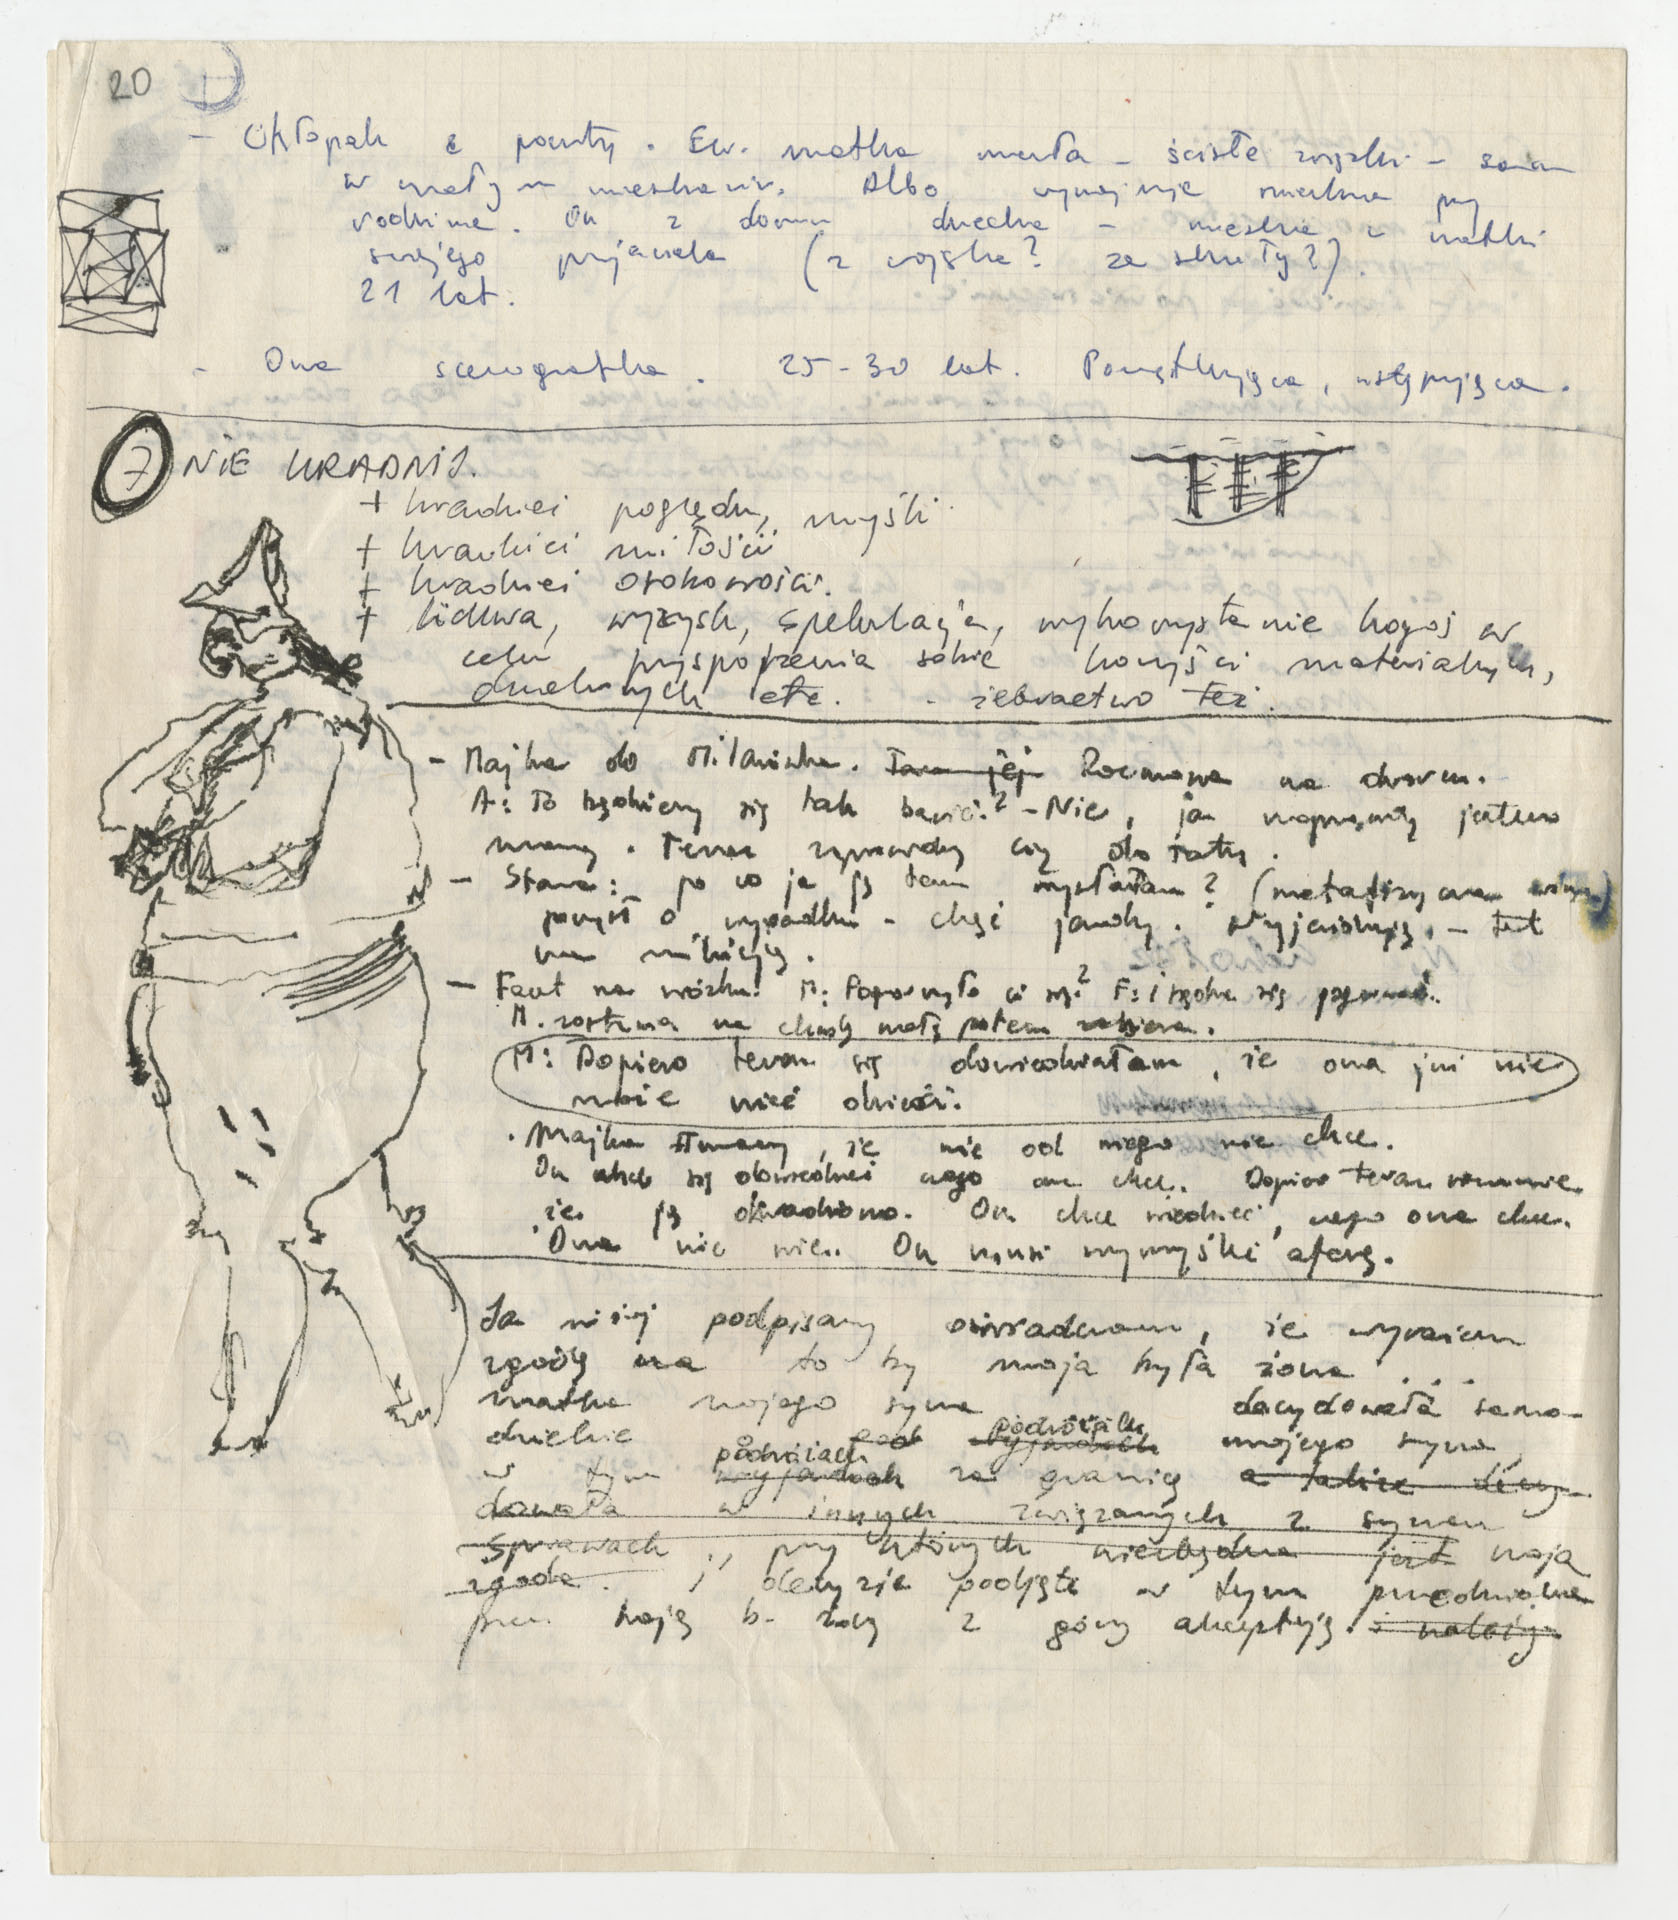 20
- Chłopak z poczty. Ew. matka umarła - ścisłe związki - sam
w małym mieszkaniu. Albo wynajmuje mieszkanie przy
rodzinie. On z domu dziecka - mieszka u matki
swojego przyjaciela (z wojska? ze szkoły?).
21 lat.
- Ona scenografka. 25-30 lat. Pociągająca,
7 NIE KRADNIJ.
+ kradzież poglądu, myśli
+ kradzież miłości
+ kradzież osobowości.
+ lichwa, wyzysk, spekulacja, wykorzystanie kogoś w
celu przysporzenia sobie korzyści materialnych,
duchowych etc. - żebractwo też.
- Majka do Milaniska. Tam jej Rozmowa na dworcu.
A: To będziemy się tak bawić? - Nie, ja naprawdę jestem
mamą. Teraz do taty.
- Stara: po co ja ją tam wysłałam? (metafizyczna
pomysł o wypadku - chęć jazdy. Wyjaśniają. - tel
na milicję.
- Facet na wózku. M: Popsuło ci się? F: i będzie się
M. została na chwilę małą potem zabiera.
M: Dopiero teraz się dowiedziałam, że ona już nie
może mieć dzieci.
. Majka tłumaczy, że nic od niego nie chce.
On chce się dowiedzieć czego ona chce. Dopiero teraz rozumie
że ją okradziono. On chce wiedzieć, czego ona chce.
Ona nie wie. On musi wymyślić aferę.
Ja niżej podpisany oświadczam, że wyrażam
zgodę na to by moja była żona . . .
matka mojego syna decydowała samo-
dzielnie podróżach mojego syna
w tym podróżach wyjazdach za granicę a także decy-
dowała w innych związanych z synem
sprawach, przy których niezbędna jest moja
zgoda. i decyzje podjęte w tym przedmiocie
przez moją b. żonę z góry akceptuję.